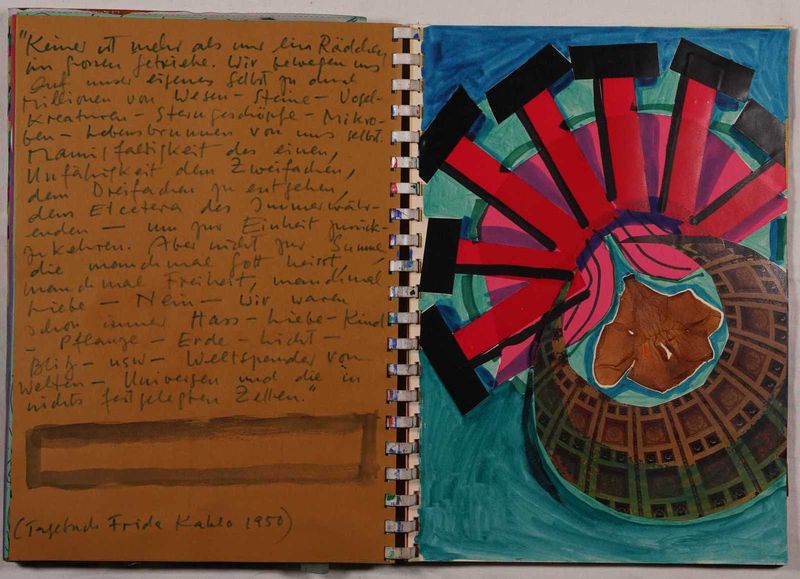 "Keiner ist mehr als nur ein Rädchen
im grossen Getriebe. Wir bewegen uns
auf unser eigenes Selbst zu durch
Millionen von Wesen – Steine – Vogel-
kreaturen – Sterngeschöpfe – Mikro-
ben – Lebensbrunnen von uns selbst.
Mannigfaltigkeit des einen,
Unfähigkeit dem Zweifachen,
dem Dreifachen zu entgehen,
dem Etcetera des Immerwäh-
renden – um zur Einheit zurück-
zukehren. Aber nicht zur Summe
die manchmal Gott heisst,
manchmal Freiheit, manchmal
Liebe – Nein – Wir waren
schon immer Hass – Liebe – Kind
– Pflanze – Erde – Licht –
Blitz – usw – Weltspender von
Welten – Universen und die in
nichts festgelegten Zellen."
(Tagebuch Frida Kahlo 1950)